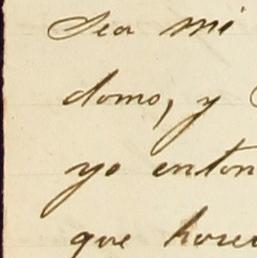 Sea mi
domo, y
yo enton
que hacer